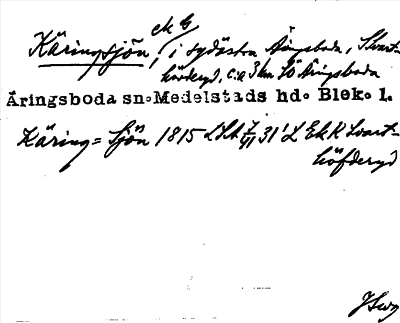 Käringsjön, ek G
i sydöstra Åringsboda, Svart-
höveryd, c:a 3 km SÖ Åringsboda
Äringsboda sn. Medelstads hd. Blek. l.
Käring= Sjön 1815 LSA 31' L EkR Svart-
höfderyd